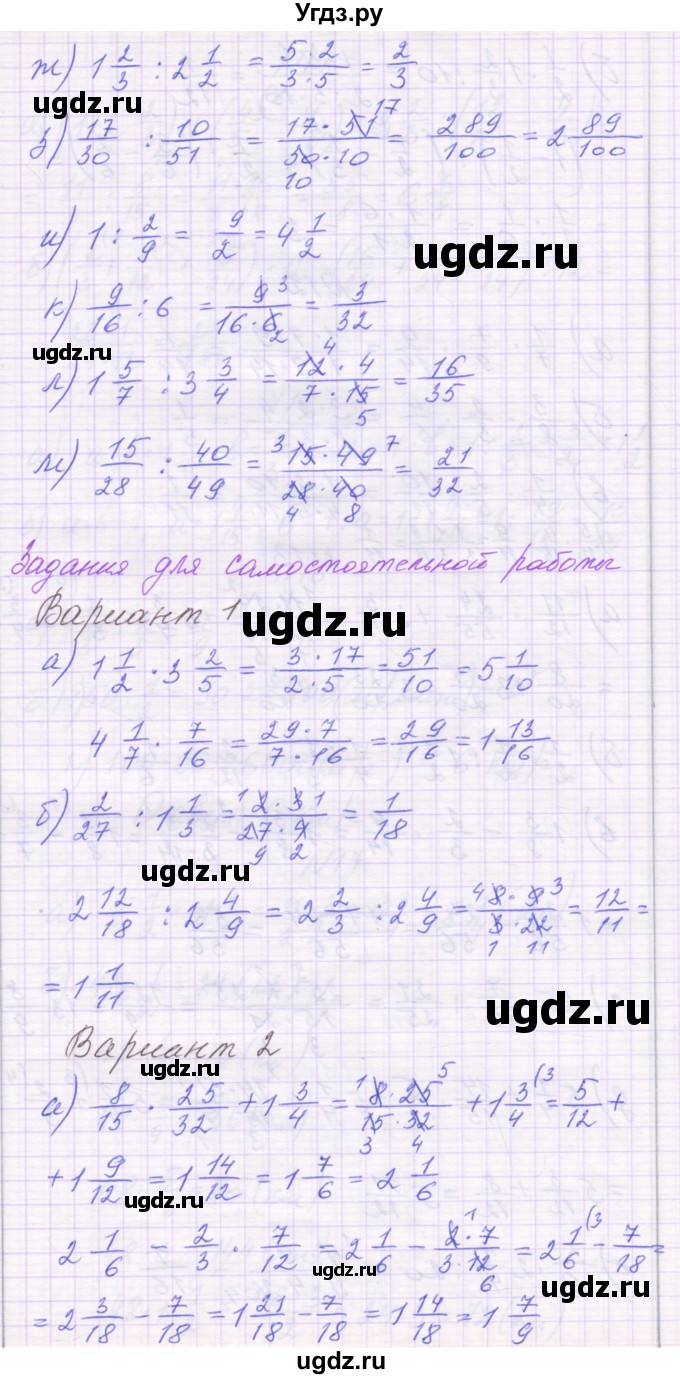 Угдз.ру
ж) 1 2/3 : 2 1/2 = 5·2/3·5 = 2/3
ugdz.ru
з) 17/30 : 10/51 = 17·51 17/30·10 10 = 289/100 = 2 89/100
и) 1 : 2/9 = 9/2 = 4 1/2
ugdz.ru
к) 9/16 : 6 = 9 3/16·6 2 = 3/32
ugdz.ru
л) 1 5/7 : 3 3/4 = 12 4·4/7·15 5 = 16/35
м) 15/28 : 40/49 = 3 15·49 7/28 4·40 8 = 21/32
Задания для самостоятельной работы
Вариант 1
ugdz.ru
а) 1 1/2 · 3 2/5 = 3·17/2·5 = 51/10 = 5 1/10
4 1/7 · 7/16 = 29·7/7·16 = 29/16 = 1 13/16
б) 2/27 : 1 1/3 = 1 2·3 1/27 9·4 2 = 1/18
ugdz.ru
2 12/18 : 2 4/9 = 2 2/3 : 2 4/9 = 4 8·9 3/3 1·22 11 = 12/11 =
= 1 1/11
ugdz.ru
Вариант 2
ugdz.ru
а) 8/15 · 25/32 + 1 3/4 = 1 8·25 5/15 3·32 4 + 1 3/4 (3 = 5/12 +
+ 1 9/12 = 1 14/12 = 1 7/6 = 2 1/6
ugdz.ru
2 1/6 - 2/3 · 7/12 = 2 1/6 - 2 1·7/3·12 6 = 2 1/6 (3 - 7/18 =
ugdz.ru
ugdz.ru
= 2 3/18 - 7/18 = 1 21/18 - 7/18 = 1 14/18 = 1 7/9
ugdz.ru